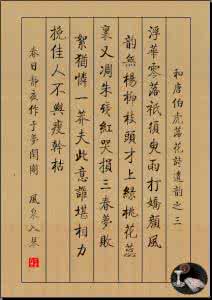 和唐伯虎落花詩遺韵之三
浮華零落祇須臾雨打嬌顏風
韵無楊柳枝頭才上緑桃花蕊
裏又凋朱殘紅哭損三春夢敗
絮猶憐一莽夫此意誰堪相力
挽佳人不與瘦幹枯
春日静夜作于夢閑閣 風泉入琴